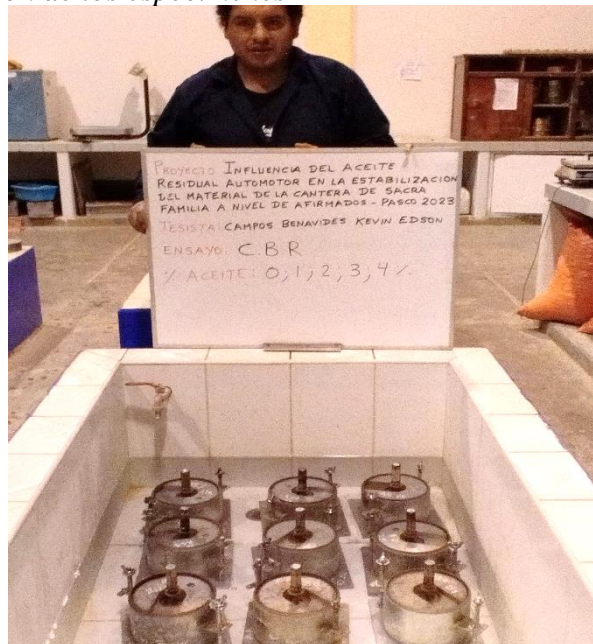 PROYECTO: INFLUENCIA DEL ACEITE
RESIDUAL AUTOMOTOR EN LA ESTABILIZACION
DEL MATERIAL DE LA CANTERA DE SACRA
FAMILIA A NIVEL DE AFIRMADOS - PASCO 2023
TESISTA: CAMPOS BENAVIDES KEVIN EDSON
ENSAYO: C.B.R
% ACEITE: 0; 1; 2; 3; 4 %